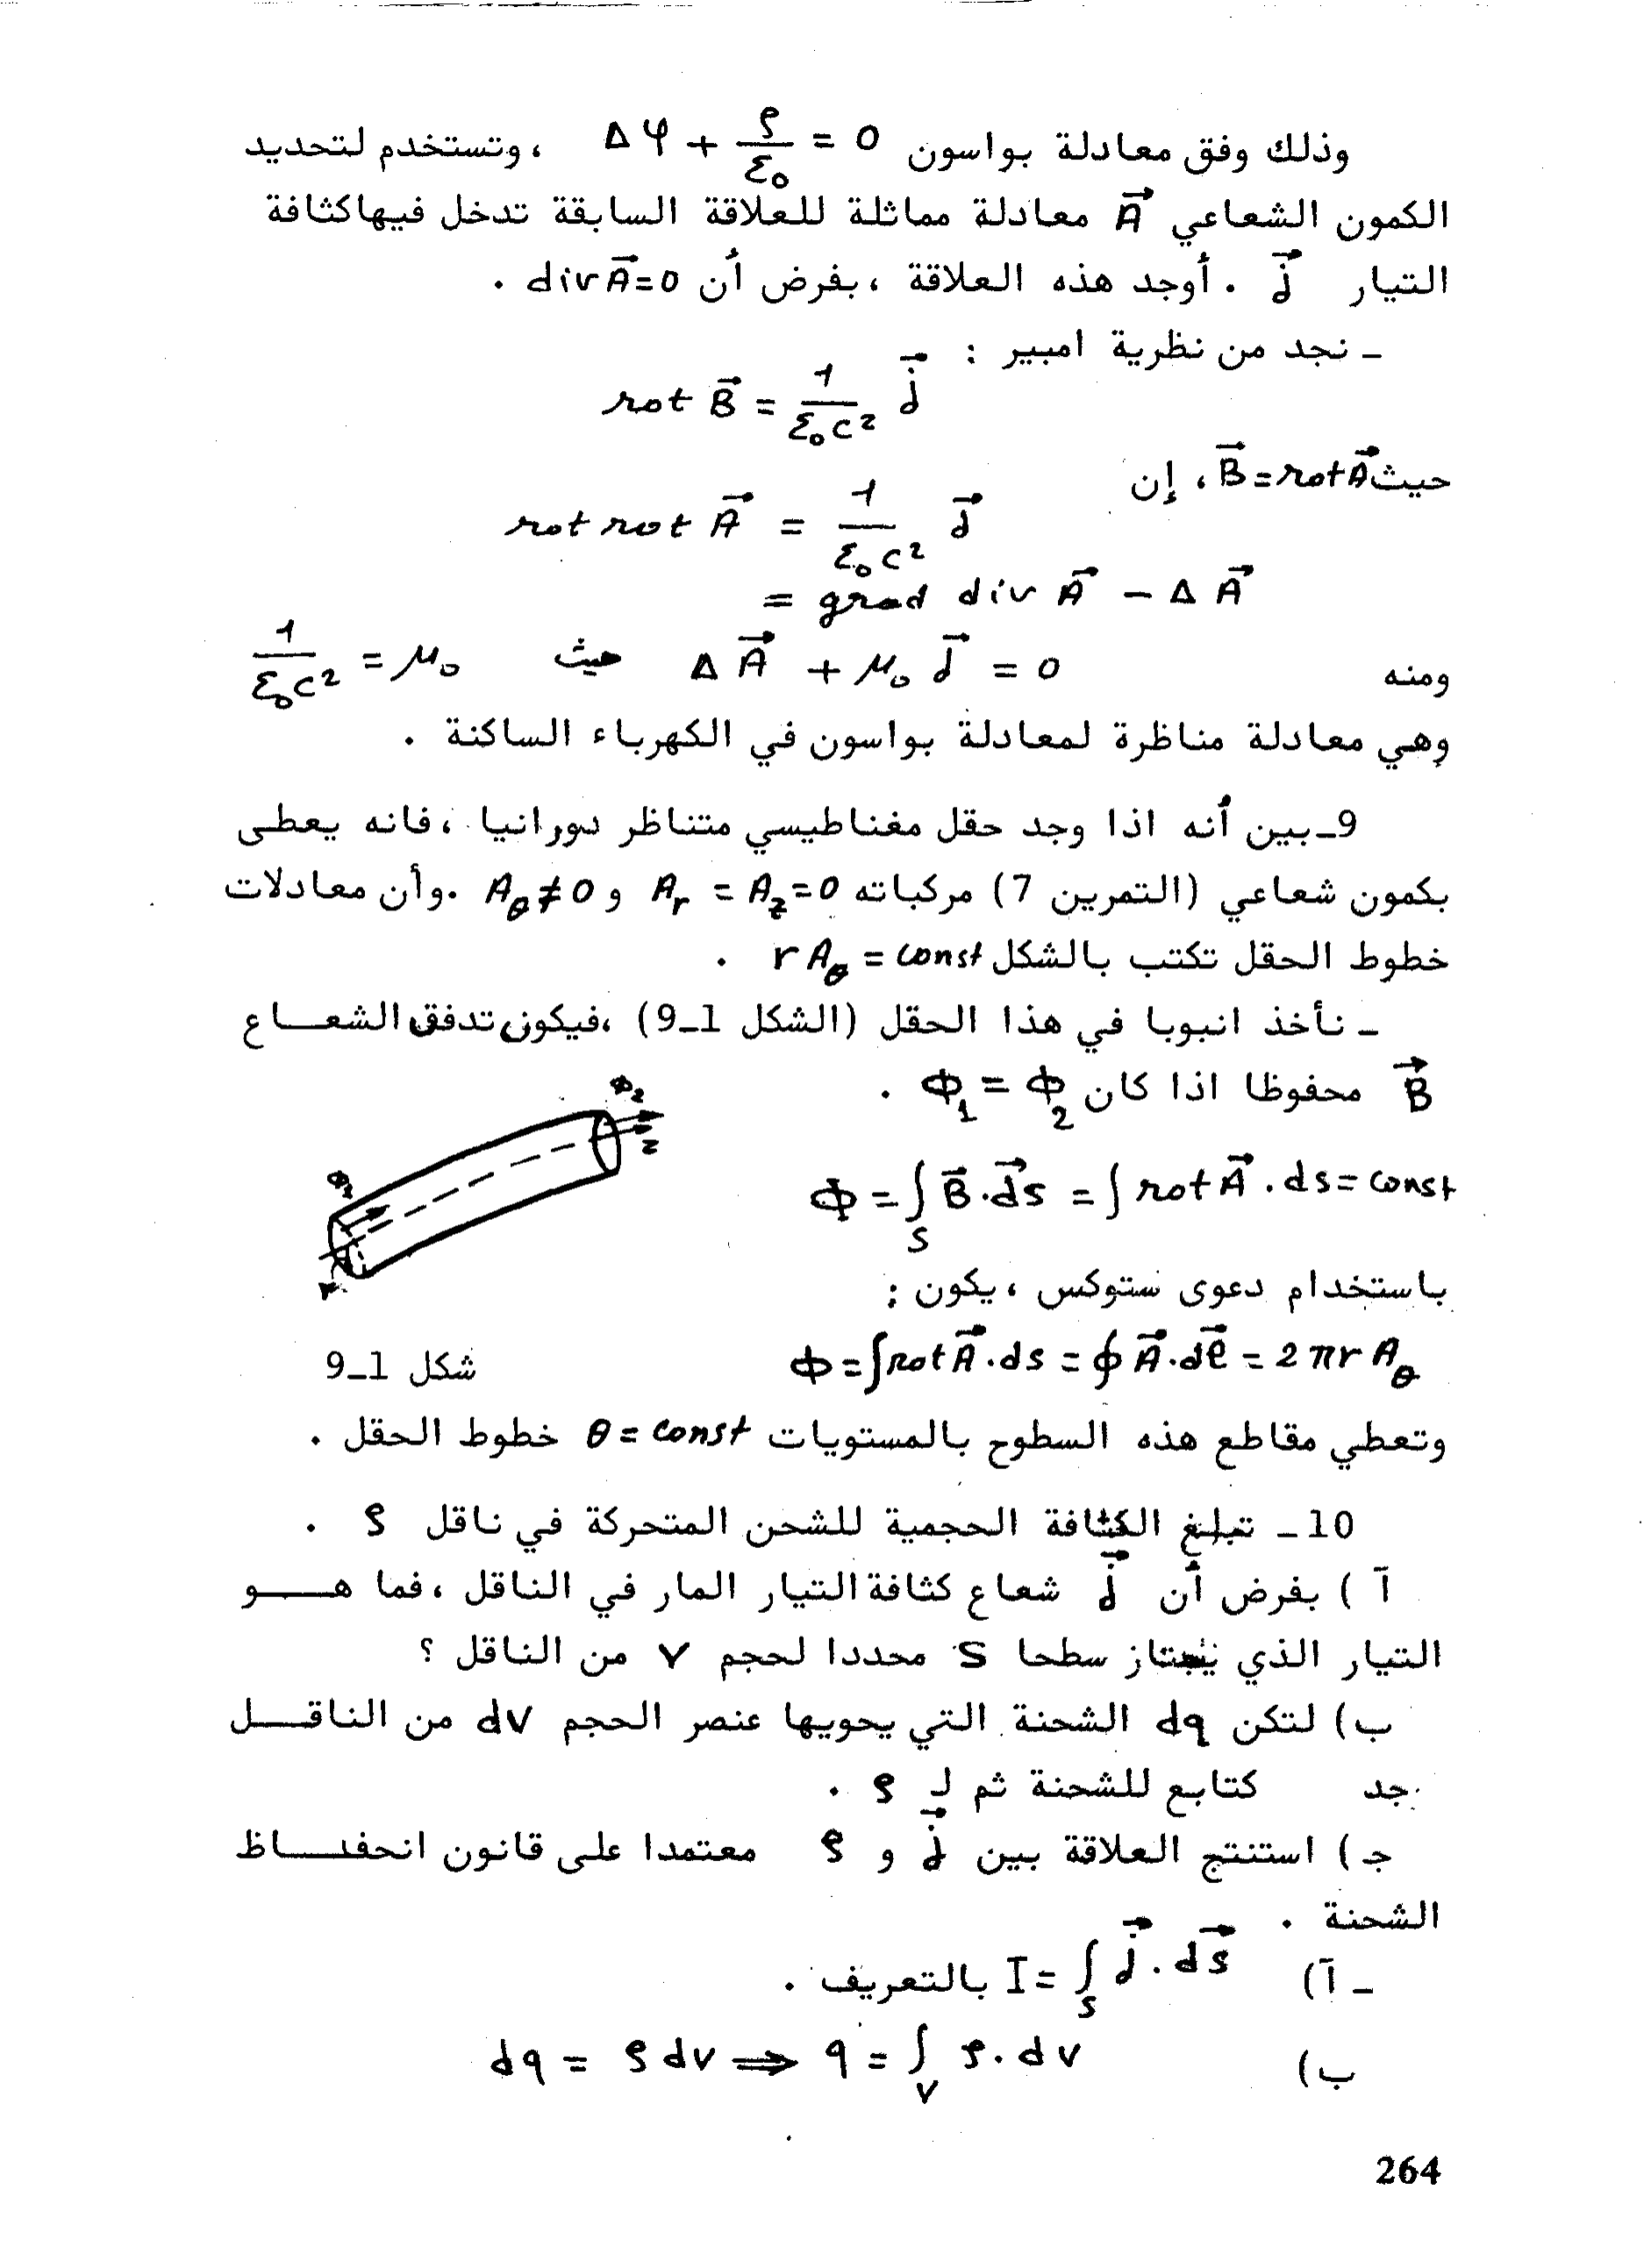 وذلك وفق معادلة بواسون Δφ + ρ/ε₀ = 0 ، وتستخدم لتحديد
الكمون الشعاعي A⃗ معادلة مماثلة للعلاقة السابقة تدخل فيها كثافة
التيار j⃗ . أوجد هذه العلاقة ، بفرض أن div A⃗ = 0 .
ـ نجد من نظرية امبير :
rot B⃗ = 1/(ε₀c²) j⃗
حيث B⃗ = rot A⃗ ، إن
rot rot A⃗ = 1/(ε₀c²) j⃗
= grad div A⃗ − Δ A⃗
ومنه Δ A⃗ + μ₀ j⃗ = 0 حيث 1/(ε₀c²) = μ₀
وهي معادلة مناظرة لمعادلة بواسون في الكهرباء الساكنة .
9ـ بين أنه اذا وجد حقل مغناطيسي متناظر دورانيا ، فانه يعطى
بكمون شعاعي (التمرين 7) مركباته A_r = A_z = 0 و A_θ ≠ 0 . وأن معادلات
خطوط الحقل تكتب بالشكل r A_θ = const .
ـ نأخذ انبوبا في هذا الحقل (الشكل 1ـ9) ، فيكون تدفق الشعـــاع
B⃗ محفوظا اذا كان Φ₁ = Φ₂ .
Φ₂
z
Φ₁
r
Φ = ∫_S B⃗ . ds⃗ = ∫ rot A⃗ . ds = const
باستخدام دعوى ستوكس ، يكون :
Φ = ∫ rot A⃗ . ds = ∮ A⃗ . dℓ⃗ = 2πr A_θ
شكل 1ـ9
وتعطي مقاطع هذه السطوح بالمستويات θ = const خطوط الحقل .
10 ـ تبلغ الكثافة الحجمية للشحن المتحركة في ناقل ρ .
آ ) بفرض أن j⃗ شعاع كثافة التيار المار في الناقل ، فما هـــو
التيار الذي يجتاز سطحا S محددا لحجم V من الناقل ؟
ب) لتكن dq الشحنة التي يحويها عنصر الحجم dv من الناقـــل
جد كتابع للشحنة ثم لـ ρ .
جـ ) استنتج العلاقة بين j⃗ و ρ معتمدا على قانون انحفـــاظ
الشحنة .
ـ آ) I = ∫_S j⃗ . ds⃗ بالتعريف .
ب) dq = ρ dv ⟹ q = ∫_V ρ . dv
264